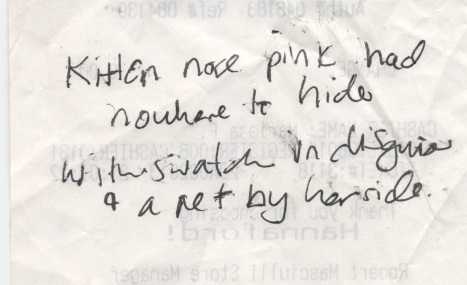 Kitten nose pink had
nowhere to hide
with swatch in disguise
& a by her side.
Thank you for choosing
Hannaford!
Robert Masciulli Store Manager